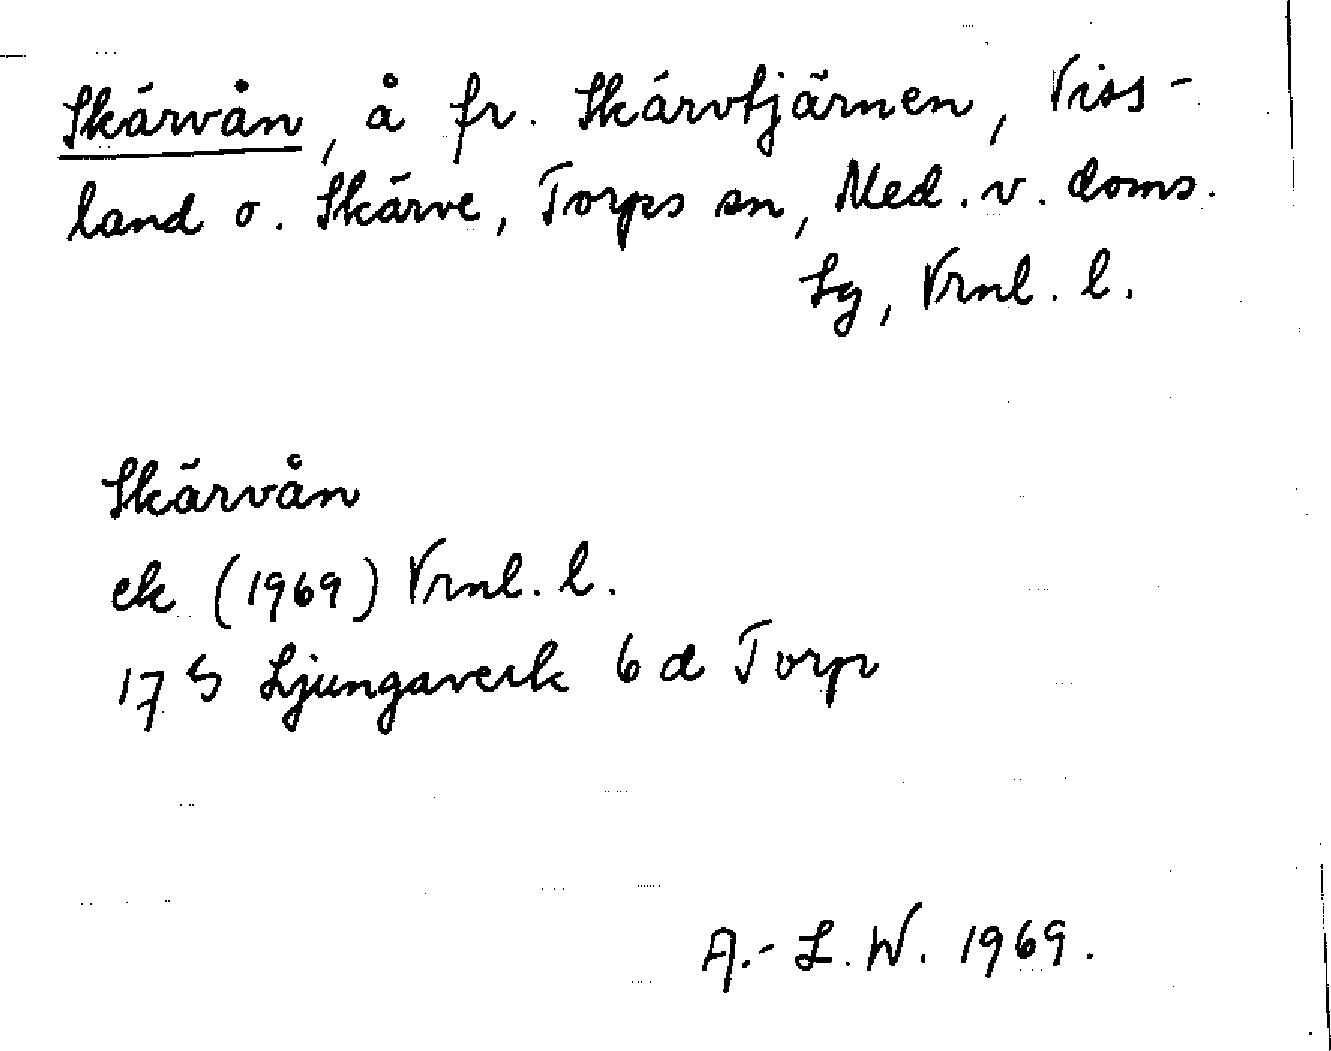 Skärvån, å fr. Skärvtjärnen, Viss-
land o. Skärve, Torps sn, Med. v. doms.
Lg, Vrnl. l.
Skärvån
ek (1969) Vrnl. l.
17 G Ljungaverk 6 d Torp
A.-L. W. 1969.